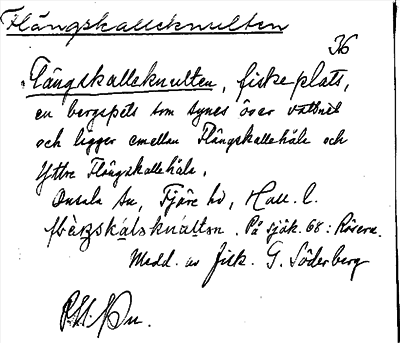 Flångskalleknulten
36
Långskalleknulten, fiskeplats,
en bergspets som synes över vattnet
och ligger emellan Flångskallehåla och
Yttre Flångskallehåla.
Onsala sn, Fjäre hd, Hall. l.
På sjök. 68: Rösera.
Medd. av fisk. G. Söderberg